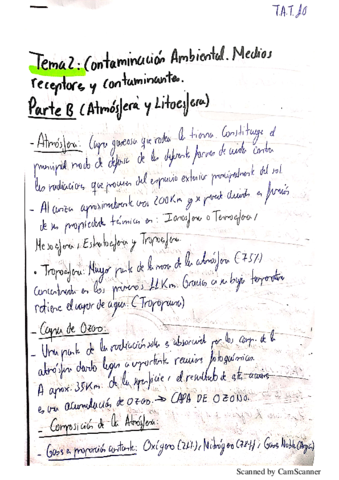 T.A.T. 10
Tema 2: Contaminación Ambiental. Medios
receptores y contaminantes.
Parte B (Atmósfera y Litosfera)
- Atmósfera: Capa gaseosa que rodea la tierra. Constituye el
principal modo de defensa de las diferentes formas de vida contra
las radiaciones que provienen del espacio exterior principalmente del sol
- Alcanza aproximadamente unos 200Km y se puede dividir en
de su propiedades térmicas en: Ionosfera o Termosfera,
Mesosfera, Estratosfera y Troposfera
• Troposfera: Mayor parte de la masa de la atmósfera (75%)
concentrada en los primeros 11Km. Gracias a su baja temperatura
retiene el vapor de agua. (Tropopausa)
- Capa de Ozono:
- Una parte de la radiación solar es absorvida por los comp. de la
atmósfera dando lugar a importantes reacciones fotoquímicas
A aprox. 35Km de la superficie, el resultado de
es una acumulación de Ozono → CAPA DE OZONO.
- Composición de la Atmósfera:
- Gases a proporción constante: Oxígeno (21%), Nitrógeno (78%), Gases Nobles (Argón)
Scanned by CamScanner